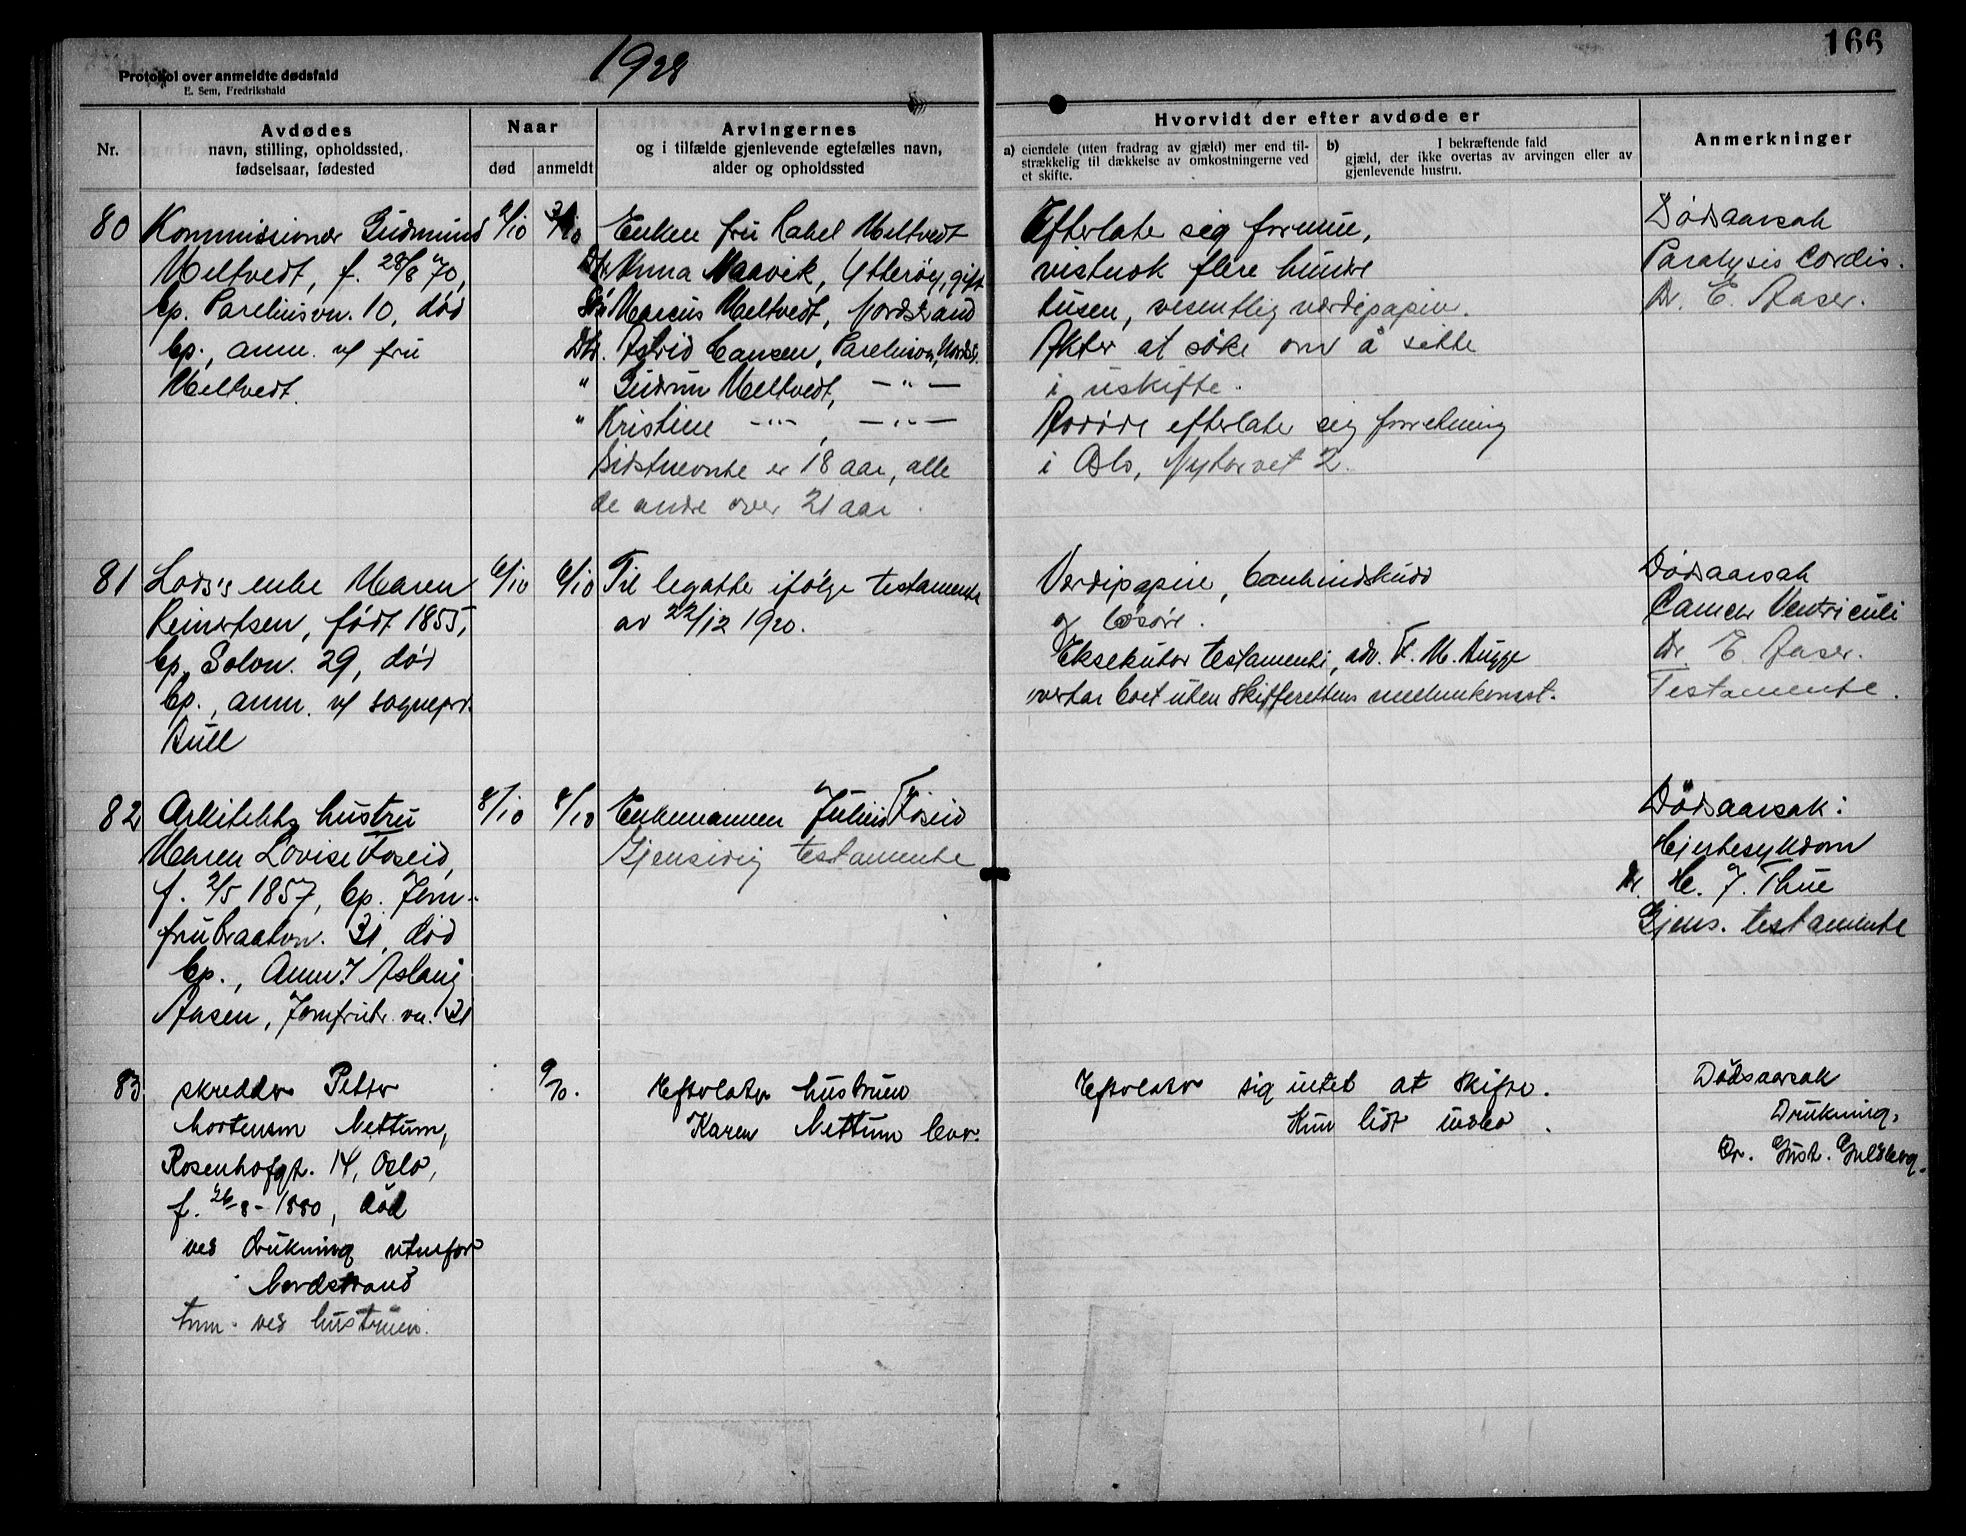 166
1928
Protokol over anmeldte dødsfald
E. Sem, Fredrikshald
Nr.
Avdødes
navn, stilling, opholdssted,
fødselsaar, fødested
Naar
død
anmeldt
Arvingernes
og i tilfælde gjenlevende egtefælles navn,
alder og opholdssted
Hvorvidt der efter avdøde er
a) eiendele (uten fradrag av gjæld) mer end til-
strækkelig til dækkelse av omkostningerne ved
et skifte.
b) I bekræftende fald
gjæld, der ikke overtas av arvingen eller av
gjenlevende hustru.
Anmerkninger
80
Kommissionær Gudmund
Meltvedt, f. 28/8 70,
bp. Pareliusvn. 10, død
bp., anm. v/ fru
Meltvedt.
2/10
3/10
Enken fru Rakel Meltvedt
Dtr. Anna Maavik, Ytterøy, gift
Søn Marcus Meltvedt, Nordstrand
Dtr. Astrid Hansen, Pareliusvn, Nordstr.
" Gudrun Meltvedt, — " —
" Kristine — " — , — " —
Sidstnevnte er 18 aar, alle
de andre over 21 aar.
Efterlater sig formue,
vistnok flere hundre
tusen, vesentlig verdipapirer.
Akter at søke om å sitte
i uskifte.
Avdøde efterlater sig forretning
i Oslo, Nytorvet 2.
Dødsaarsak
Paralysis Cordis.
Dr. E. Aaser.
81
Lods's enke Maren
Reinertsen, født 1855,
bp. Solvn. 29, død
bp., anm. v/ sognepr.
Bull
6/10
6/10
Til legatter ifølge testamente
av 22/12 1920.
Verdipapirer, bankindskudd
og løsøre.
Eksekutor testamenti, adv. F. M. Bugge
overtar boet uten skifterettens mellemkomst.
Dødsaarsak
Cancer Ventriculi
Dr. E. Aaser.
Testamente.
82
Arkitekts hustru
Maren Lovise Foseid,
f. 2/5 1857, bp. Jom-
frubraatvn. 31, død
bp., Anm. v/ Aslaug
Aasen, Jomfrubr.vn. 31
8/10
8/10
Enkemannen Julius Foseid
Gjensidig testamente
Dødsaarsak:
Hjertesykdom
Dr. H. J. Thue
Gjens. testamente
83
skredder Petter
Mortensen Nettum,
Rosenhofgt. 14, Oslo,
f. 26-8-1880, død
ved drukning utenfor
Nordstrand
anm. ved hustruen.
9/10.
Efterlater hustruen
Karen Nettum
Efterlater sig intet at skifte.
Kun lidt indbo.
Dødsaarsak
Drukning.
Dr. Gust. Guldberg.